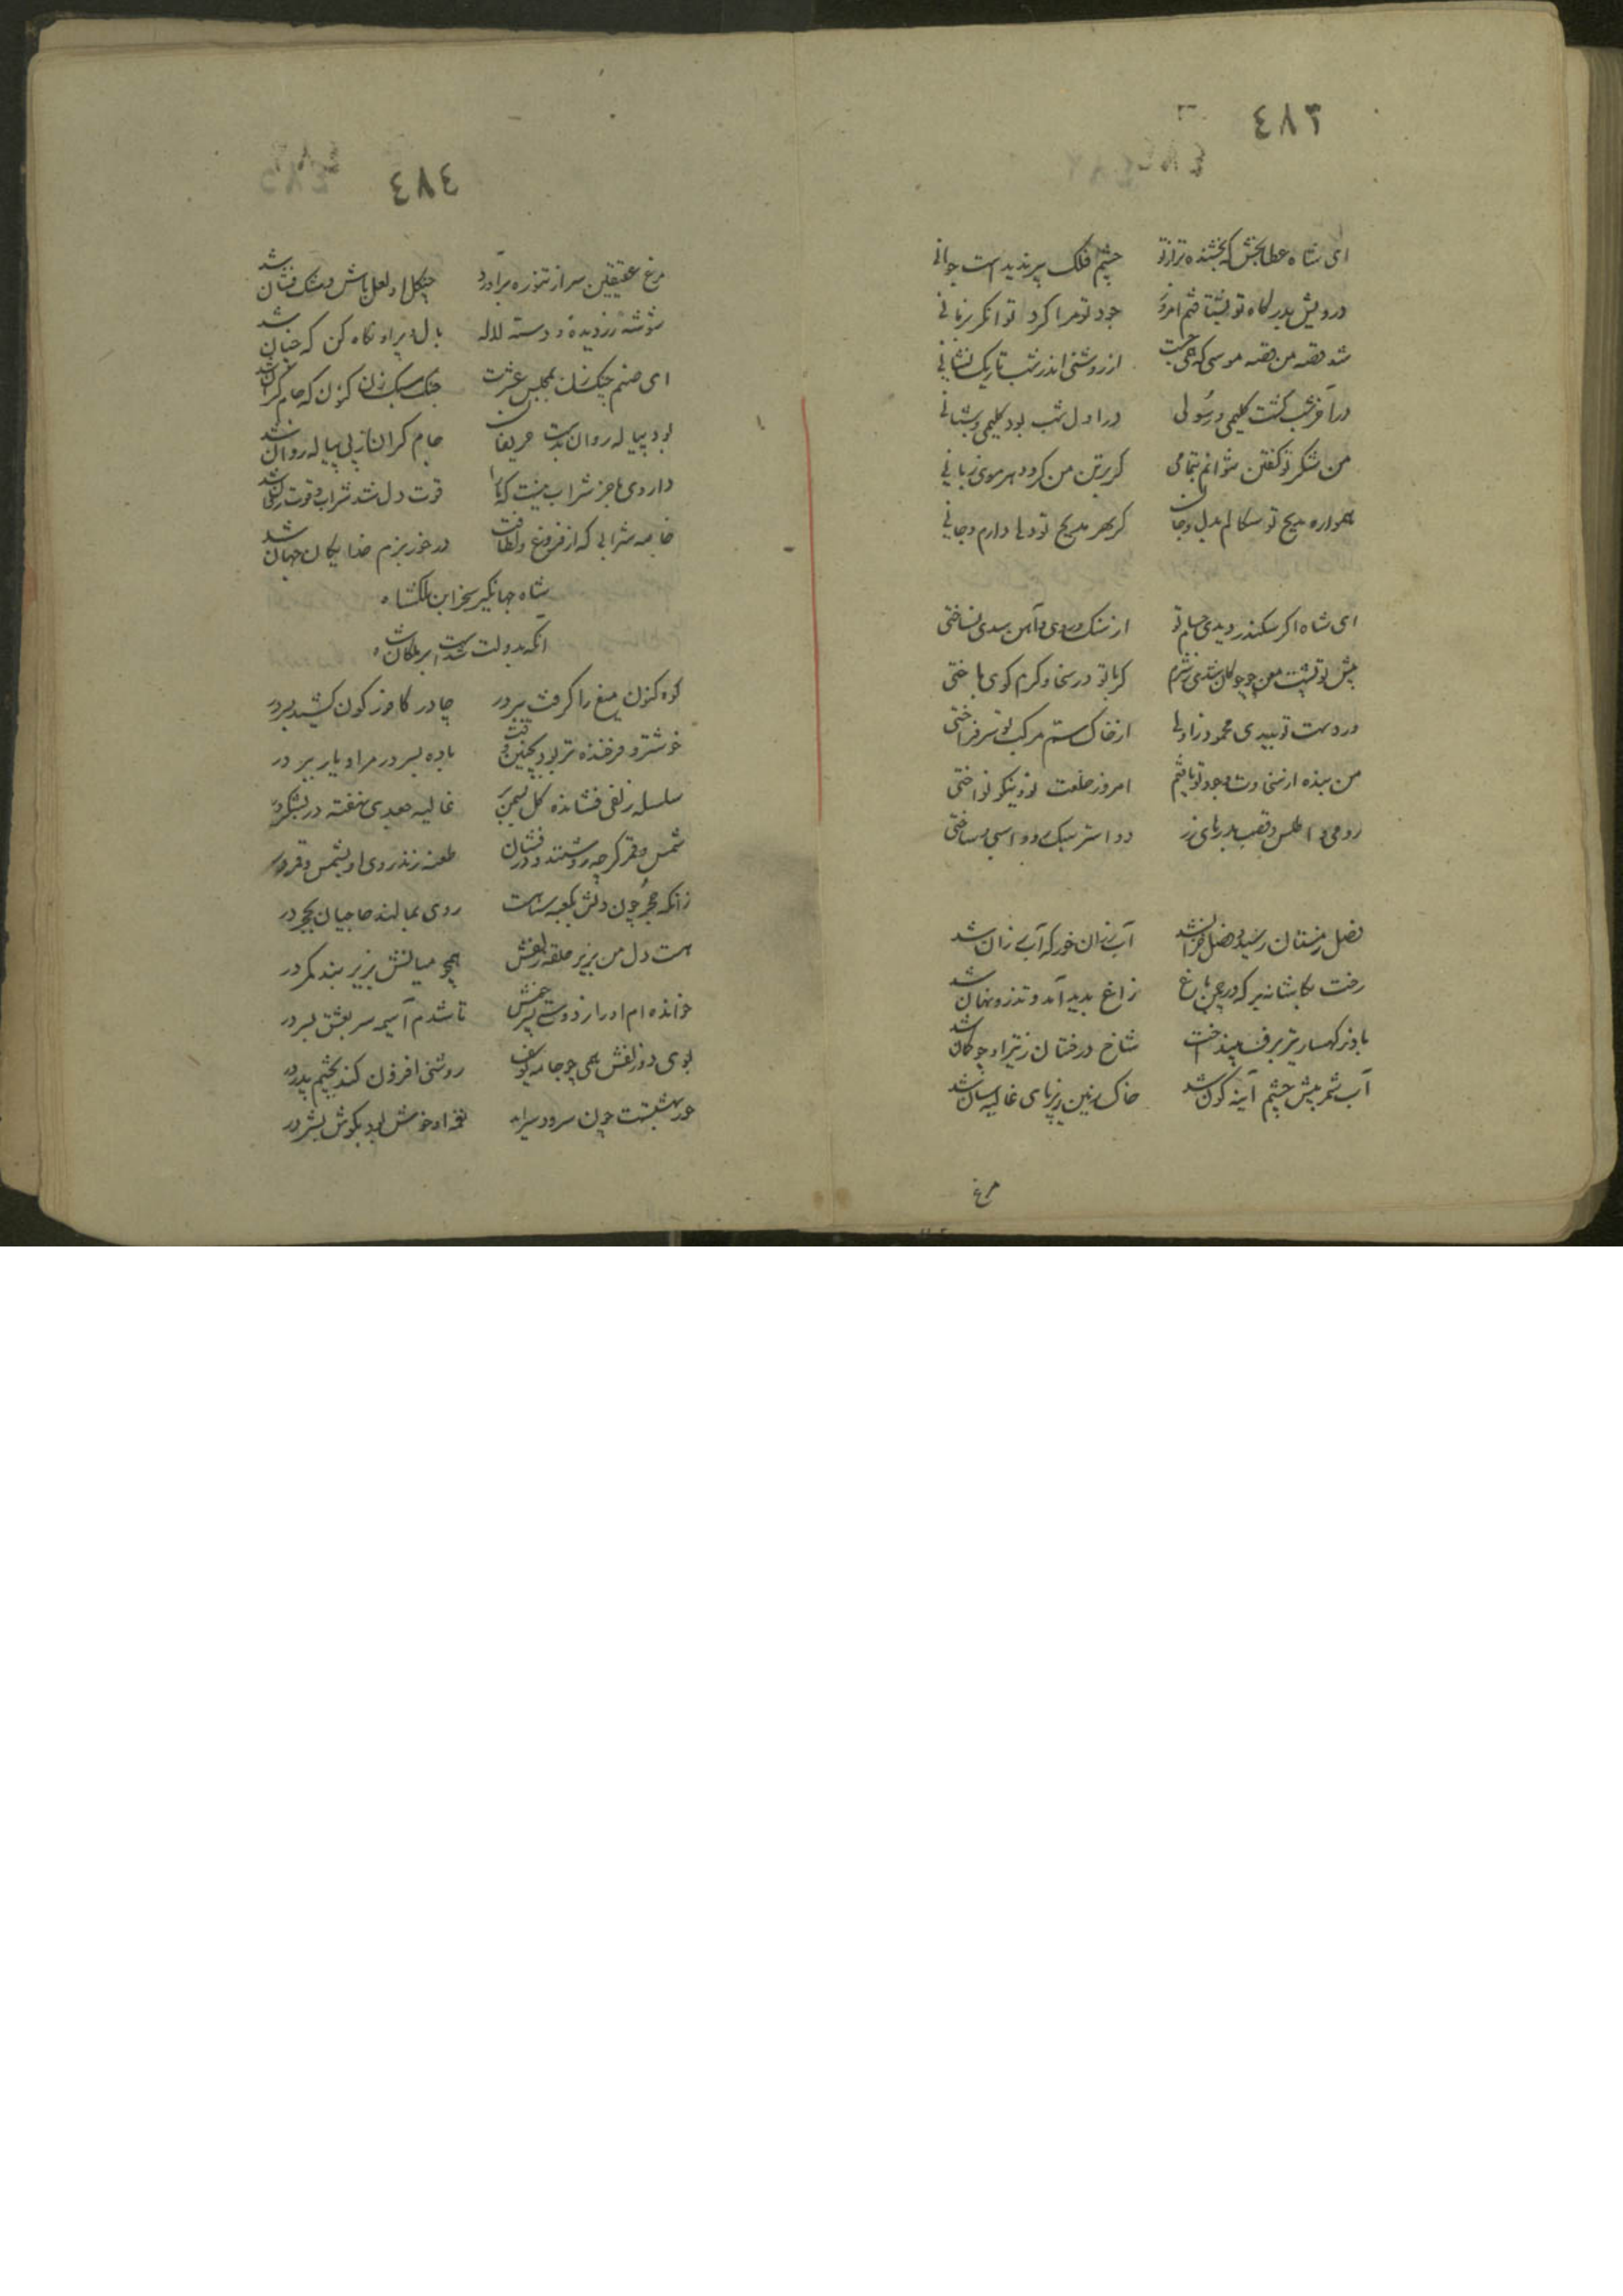 ٤٨٣
ای شاه عطابخش که بخشنده‌تر از تو چشم فلک پیر ندیدست جوانی
درویش بدرگاه تو بشتافتم امروز جود تو مرا کرد توانگر بزمانی
شد قصه من قصه موسی که همی جست از روشنی اندر شب تاریک نشانی
در آخر شب گشت کلیمی و رسولی در اول شب بود کلیمی و شبانی
من شکر تو گفتن نتوانم بتمامی گر بر تن من گردد هر موی زبانی
همواره مدیح تو سکالم بدل و جان کز بهر مدیح تو دلی دارم و جانی
ای شاه اگر سکندر دیدی حسام تو از سنگ و روی و آهن سدی نساختی
پیش تو پشت معن چو چوگان شدی ز شرم گر با تو در سخا و کرم گوی باختی
ور دست تو بدیدی محمود زاولی از خاک ستم مرکب تو سر فراختی
من بنده از سخاوت وجود تو یافتم امروز خلعت تو و نیکو نواختی
رومی و اطلس و قصب و درهای زر دو استر سبک دو و اسبی و ساختی
فصل زمستان رسید و فصل خزان شد آب رزان خور که آب رزان شد
رخت بکاشانه بر که در چمن باغ زاغ پدید آمد و تذرو نهان شد
باد ز کهسار تیر برف بینداخت شاخ درختان ز تیر او چو کمان شد
آب شمر پیش چشم آینه گون شد خاک زمین زیر پای غالیه سان شد
مرغ
٤٨٤
مرغ عقیقین سر از تنوره برآورد چنگل او لعل پاش و مشک فشان شد
شوشه زر دیده‌ و دسته لاله بال و پر او نگاه کن که چنان شد
ای صنم چنگ زن بمجلس عشرت چنگ سبک زن کنون که جام گران شد
بود پیاله روان بدست حریفان جام گران از پی پیاله روان شد
داروی ما جز شراب نیست که ما را قوت دل شد شراب و قوت روان شد
خاصه شرابی که از فروغ و لطافت در خور بزم خدایگان جهان شد
شاه جهانگیر سنجر ابن ملکشاه
آنکه بدولت شدست ابر ملکان شاه
کوه کنون میغ را گرفت ببر در چادر کافور گون کشید بسر در
خوشتر و فرخنده‌تر بود بچنین وقت باده بسر در مرا و یار ببر در
سلسله زلفی فشانده گل بسمن بر غالیه جعدی نهفته در بشکر در
شمس و قمر گرچه روشنند و درفشان طعنه زند روی او بشمس و قمر در
زانکه حجر چون دلش بکعبه سیاهست روی بمالند حاجیان بحجر در
هست دل من بزیر حلقه زلفش همچو میانش بزیر بند کمر در
خوانده‌ام او را ز دوستی پسر خویش تا شدم آسیمه سر بعشق پسر در
بوی دو زلفش همی چو جامه یوسف روشنی افزون کند بچشم پدر در
حور بهشتست چون سرود سراید نغمه او خوش بود بگوش بشر در